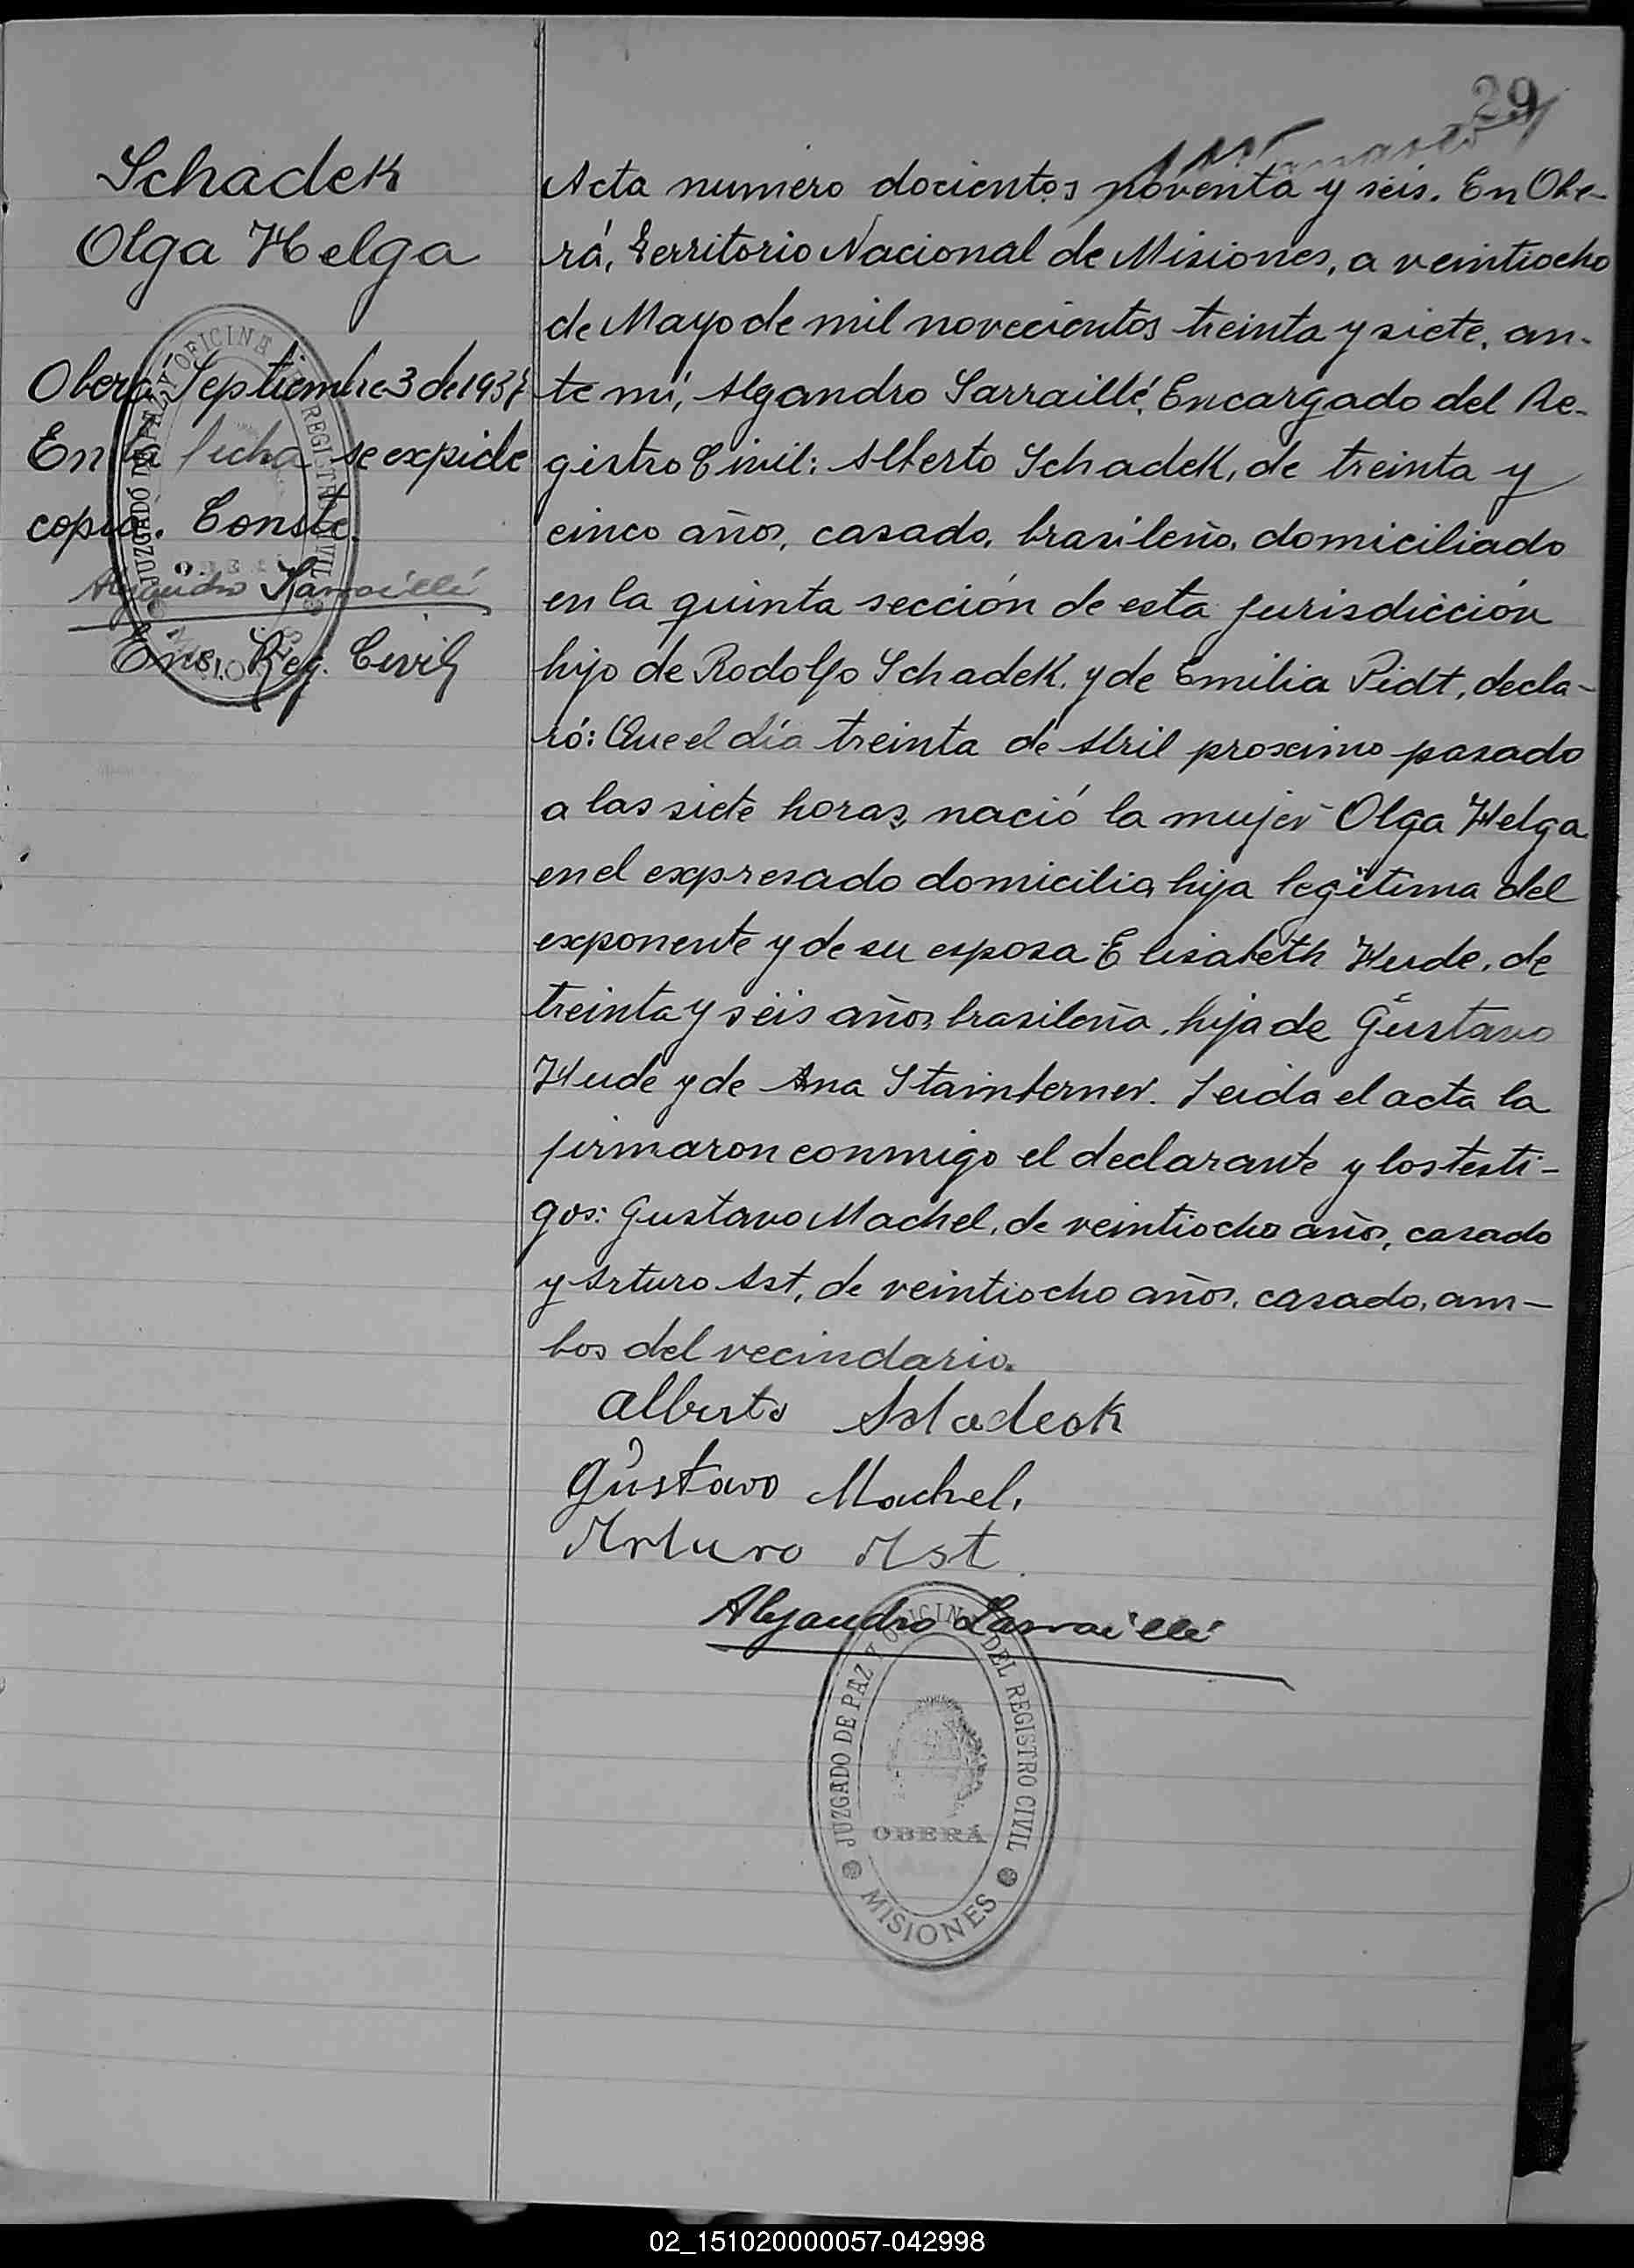 29
Schadek
Olga Helga
Oberá, Septiembre 3 de 1937
En la fecha se expide
copia. Conste.
Alejandro Sarraillé
Enc. Reg. Civil
JUZGADO DE PAZ Y OFICINA DEL REGISTRO CIVIL
OBERÁ
MISIONES
Acta numero docientos noventa y seis. En Obe-
rá, Territorio Nacional de Misiones, a veintiocho
de Mayo de mil novecientos treinta y siete, an-
te mí, Alejandro Sarraillé, Encargado del Re-
gistro Civil: Alberto Schadek, de treinta y
cinco años, casado, brasileño, domiciliado
en la quinta sección de esta jurisdicción
hijo de Rodolfo Schadek, y de Emilia Pidt, decla-
ró: Que el día treinta de Abril proximo pasado
a las siete horas, nació la mujer Olga Helga
en el expresado domicilio, hija legítima del
exponente y de su esposa Elisabeth Hude, de
treinta y seis años, brasileña, hija de Gustavo
Hude y de Ana Stainberner. Leida el acta la
firmaron conmigo el declarante y los testi-
gos: Gustavo Machel, de veintiocho años, casado
y Arturo Ast, de veintiocho años, casado, am-
bos del vecindario.
Alberto Schadeck
Gustavo Machel.
Arturo Ast
Alejandro Sarraillé
JUZGADO DE PAZ Y OFICINA DEL REGISTRO CIVIL
OBERÁ
MISIONES
02_151020000057-042998